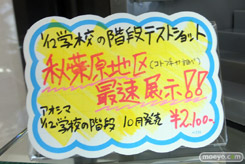 1/12学校の階段テストショット
秋葉原地区(コトブキヤ調べ)
最速展示!!
アオシマ
1/12学校の階段 10月発売 ¥2,100-